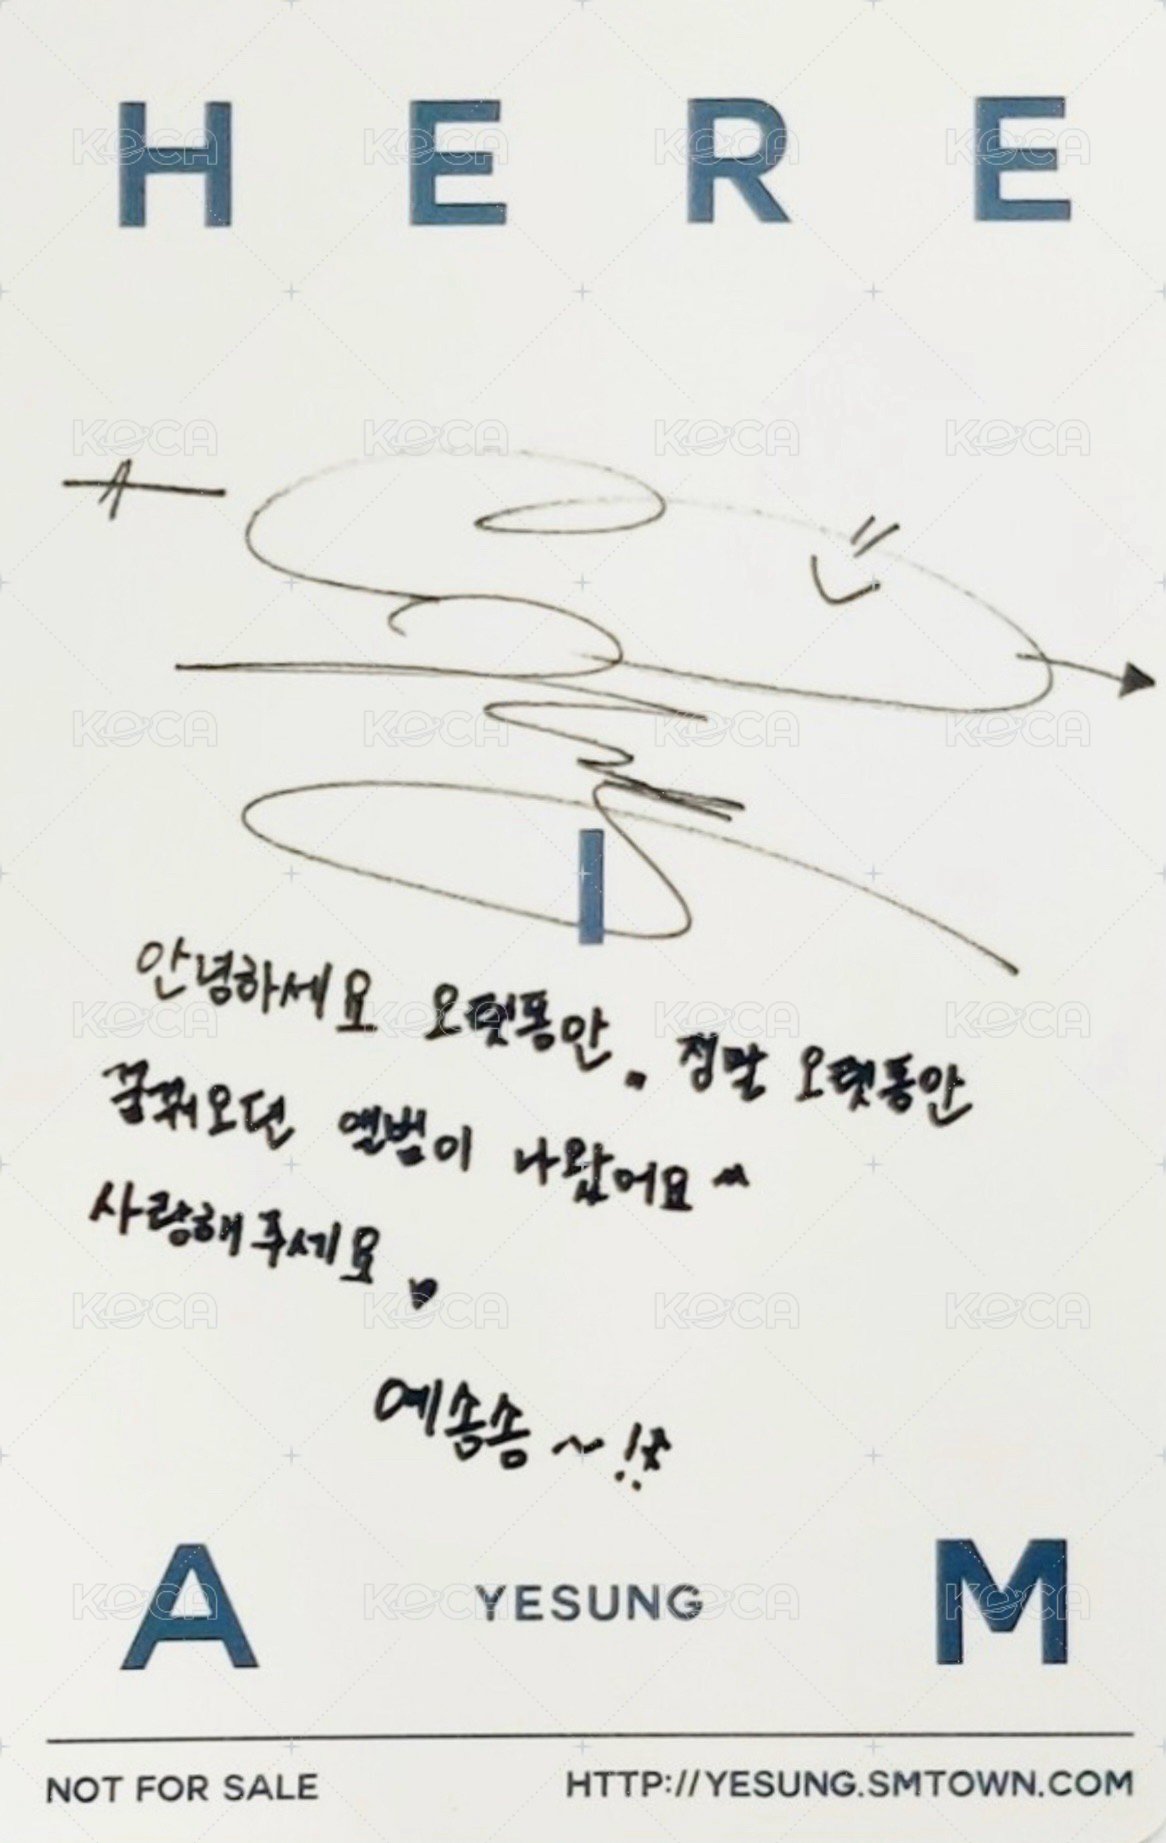 H E R E
I
안녕하세요 오랫동안. 정말 오랫동안
꿈꿔오던 앨범이 나왔어요 ^^
사랑해주세요 ♥
예송송~!!☆
A YESUNG M
NOT FOR SALE HTTP://YESUNG.SMTOWN.COM
KOCA